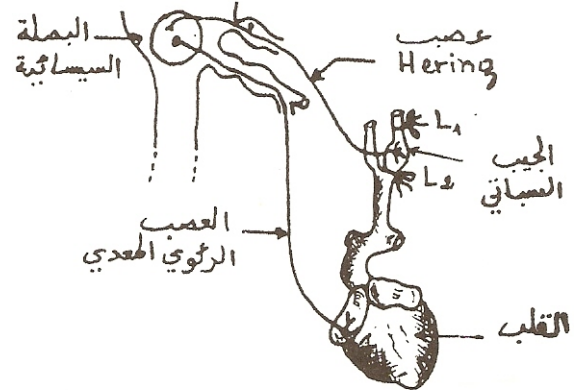 البصلة
السيسائية
عصب
Hering
L₁
الجيب
السباتي
L₂
العصب
الرئوي المعدي
القلب